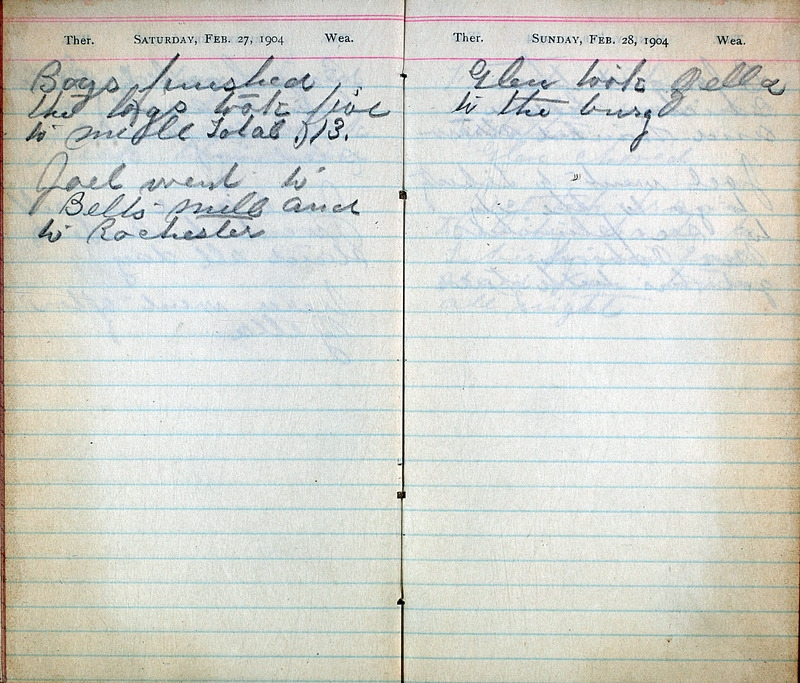 Ther. Saturday, Feb. 27, 1904 Wea.
Boys finished
the logs took five
to mill Total 13.
Joel went to
Bells mill and
to Rochester
Ther. Sunday, Feb. 28, 1904 Wea.
Glen took Zella
to the burg